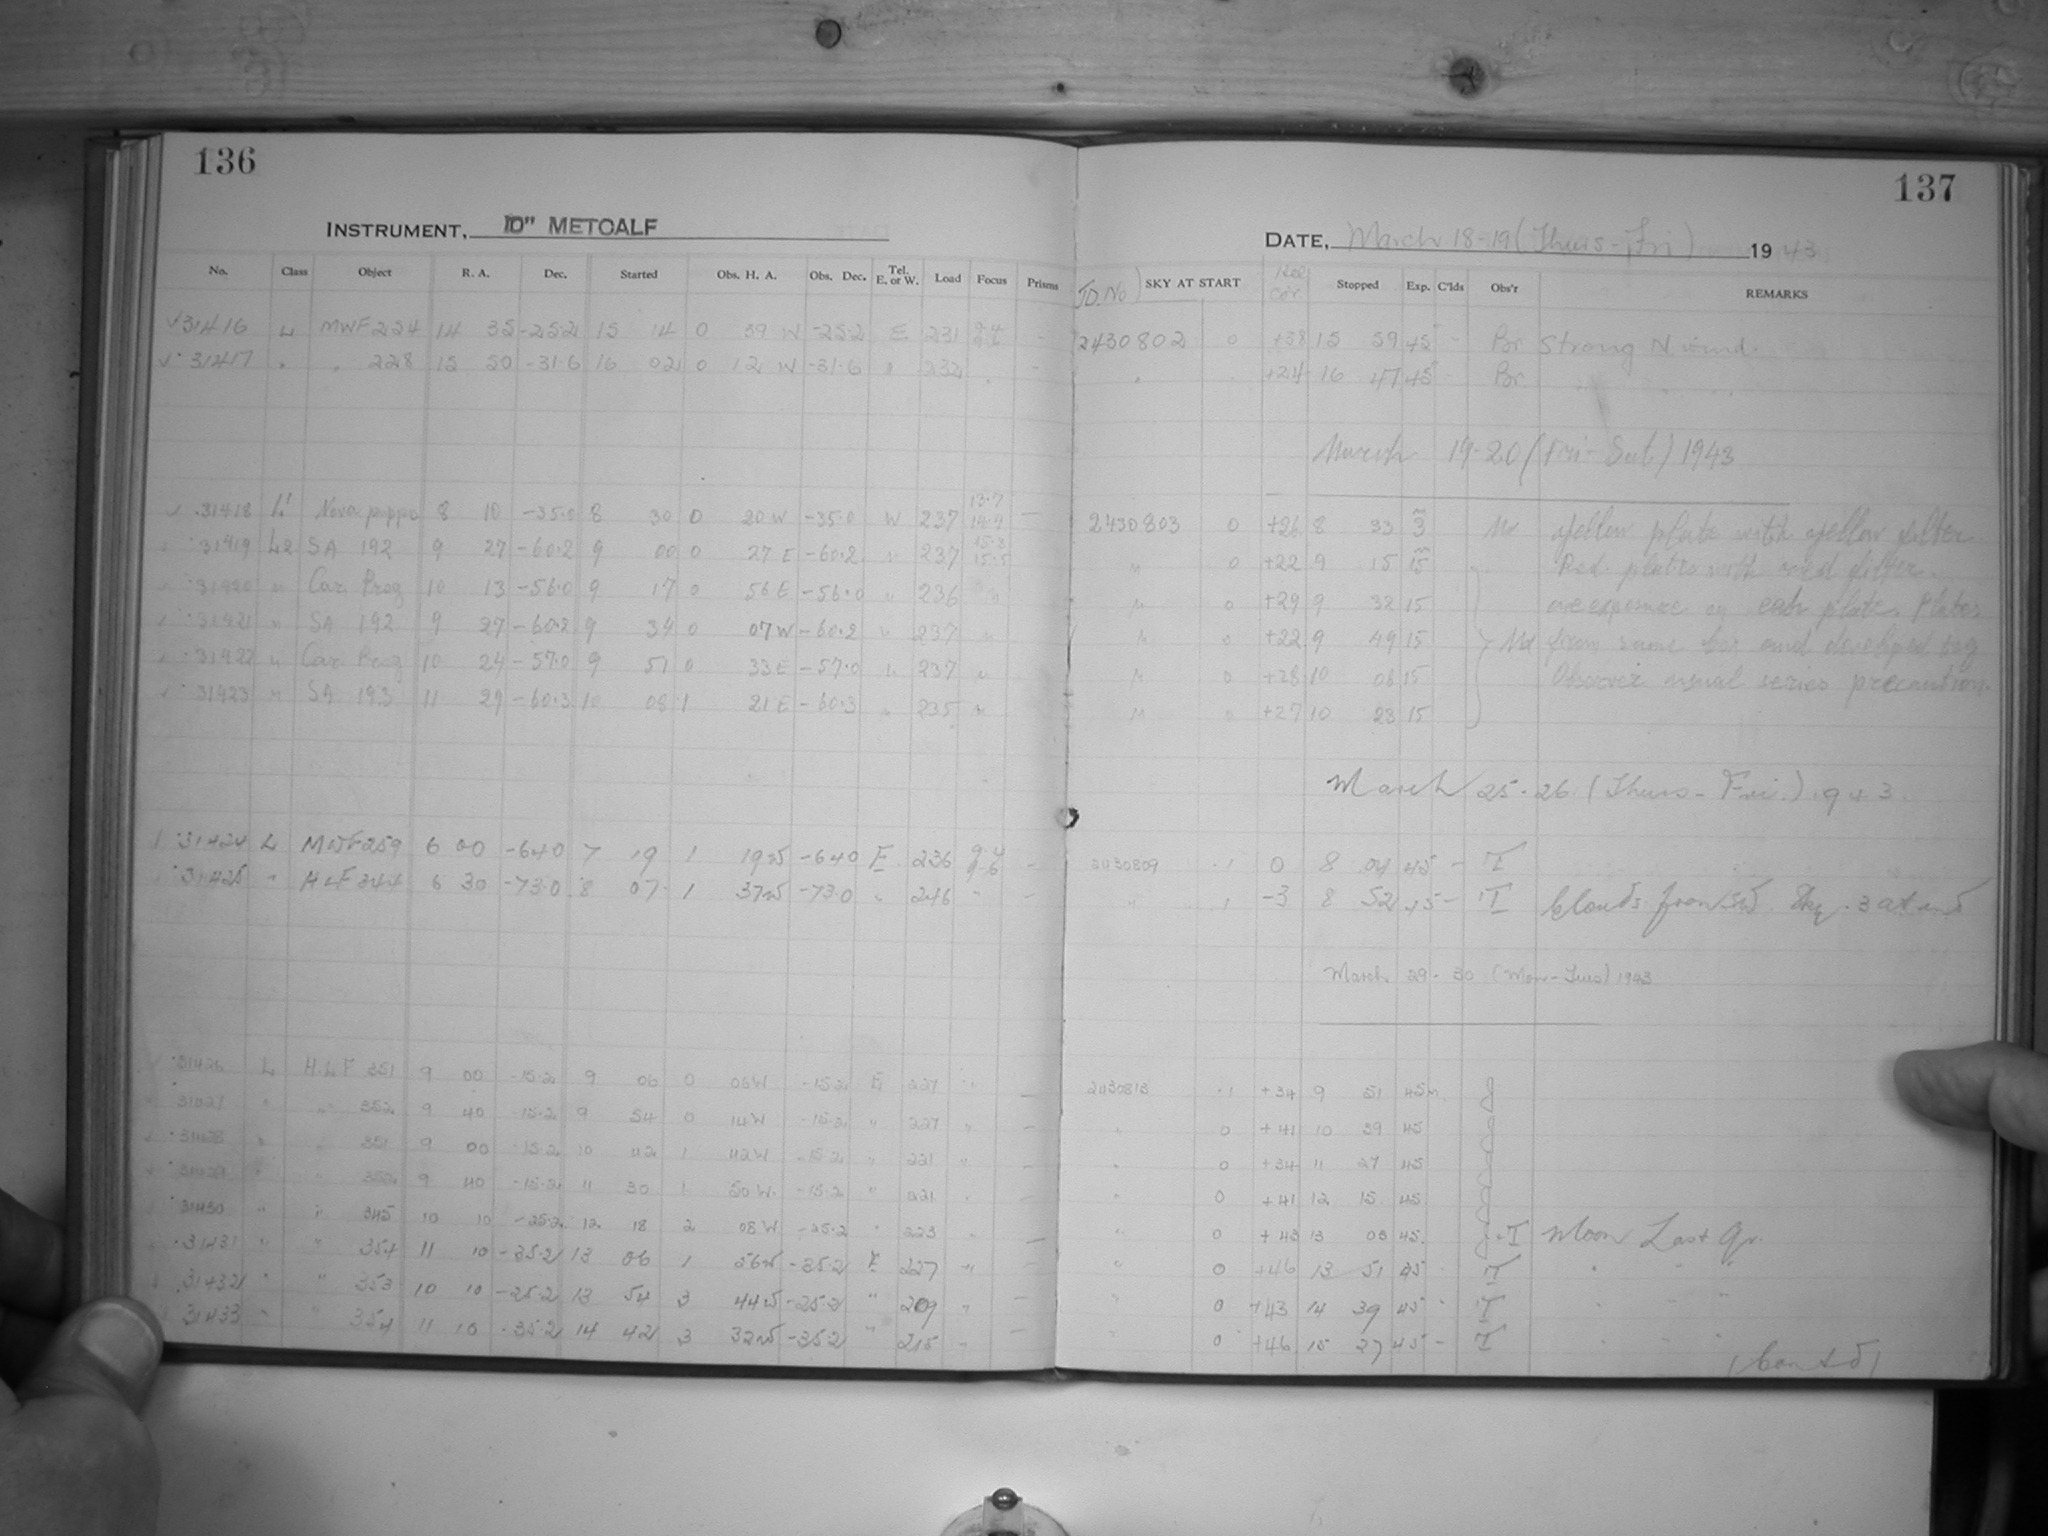 136
INSTRUMENT, 10" METCALF
No. Class Object R. A. Dec. Started Obs. H. A. Obs. Dec. Tel. E. or W. Load Focus Prisms
31416 L MWF 224 14 35 -25.2 15 14 0 39 W -25.2 E 231
31417 " " 228 15 50 -31.6 16 02 0 12 W -31.6 " 232 "
31418 L' Nova puppis 8 10 -35.0 8 30 0 20 W -35.0 W 237 13.7 14.9
31419 L2 SA 192 9 27 -60.2 9 00 0 27 E -60.2 " 237 15.3 15.5
31420 " Car Prog 10 13 -56.0 9 17 0 56 E -56.0 " 236 "
31421 " SA 192 9 27 -60.2 9 34 0 07 W -60.2 " 237 "
31422 " Car Prog 10 24 -57.0 9 51 0 33 E -57.0 " 237 "
31423 " SA 193 11 29 -60.3 10 08 1 21 E -60.3 " 235 "
31424 L MWF 259 6 00 -64.0 7 19 1 19 W -64.0 E 236 9.4 9.6 -
31425 " HLF 344 6 30 -73.0 8 07 1 37 W -73.0 " 246 " -
31426 L HLF 351 9 00 -15.2 9 06 0 06 W -15.2 E 227 "
31427 " " 352 9 40 -15.2 9 54 0 14 W -15.2 " 227 " -
31428 " " 351 9 00 -15.2 10 42 1 42 W -15.2 " 221 " -
31429 " " 352 9 40 -15.2 11 30 1 50 W -15.2 " 221 " -
31430 " " 345 10 10 -25.2 12 18 2 08 W -25.2 " 223 " -
31431 " " 354 11 10 -35.2 13 06 1 56 W -35.2 E 227 " -
31432 " " 353 10 10 -25.2 13 54 3 44 W -25.2 " 209 " -
31433 " " 354 11 10 -35.2 14 42 3 32 W -35.2 " 215 " -
137
DATE, March 18-19 (Thurs-Fri) 1943
J.D. No SKY AT START Stopped Exp. C'lds Obs'r REMARKS
2430802 0 +38 15 59 45 - Br Strong N. wind.
" +24 16 47 45 Br "
March 19-20 (Fri-Sat) 1943
2430803 0 +26 8 33 3 Yellow plate with yellow filter
" 0 +22 9 15 15 Red plates with red filter.
" 0 +29 9 32 15 one exposure on each plate. Plates
" 0 +22 9 49 15 from same box and developed tog
" 0 +28 10 06 15 Observer usual series precaution.
" 0 +27 10 23 15
March 25-26 (Thurs-Fri.) 1943.
2430809 .1 0 8 04 45 - T
" .1 -3 8 52 45 - T Clouds from SW. Sky .3 at end
March 29-30 (Mon-Tues) 1943
2430813 .1 +34 9 51 45m.
" 0 +41 10 39 45
" 0 +34 11 27 45
" 0 +41 12 15 45
" 0 +43 13 03 45 T Moon Last Qr.
" 0 +46 13 51 45 T " " "
" 0 +43 14 39 45 " T " " "
" 0 +46 15 27 45 - T " " "
(Cont'd)